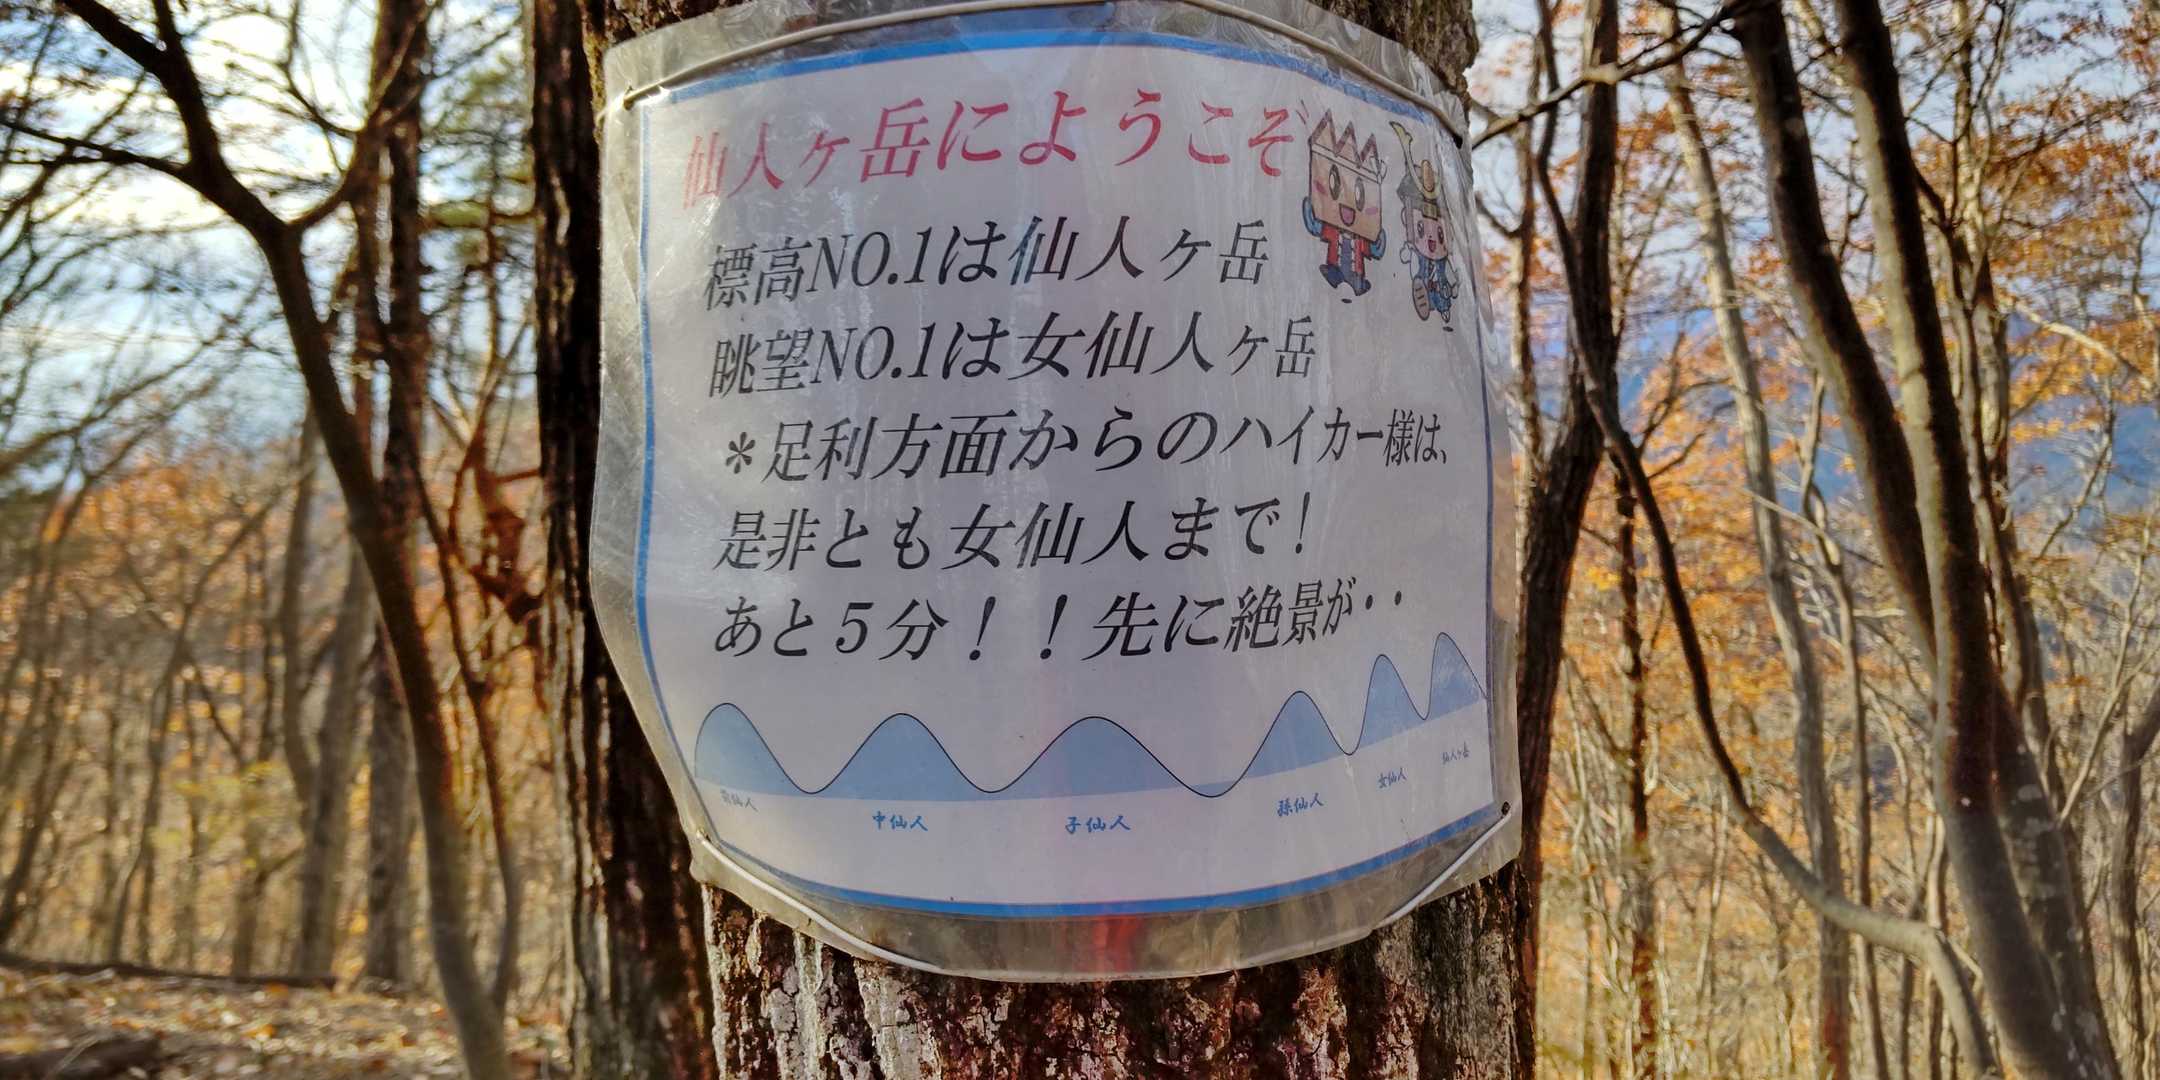 仙人ヶ岳にようこぞ
標高NO.1は仙人ヶ岳
眺望NO.1は女仙人ヶ岳
＊足利方面からのハイカー様は、
是非とも女仙人まで！
あと５分！！先に絶景が・・
前仙人
中仙人
子仙人
孫仙人
女仙人
仙人ヶ岳